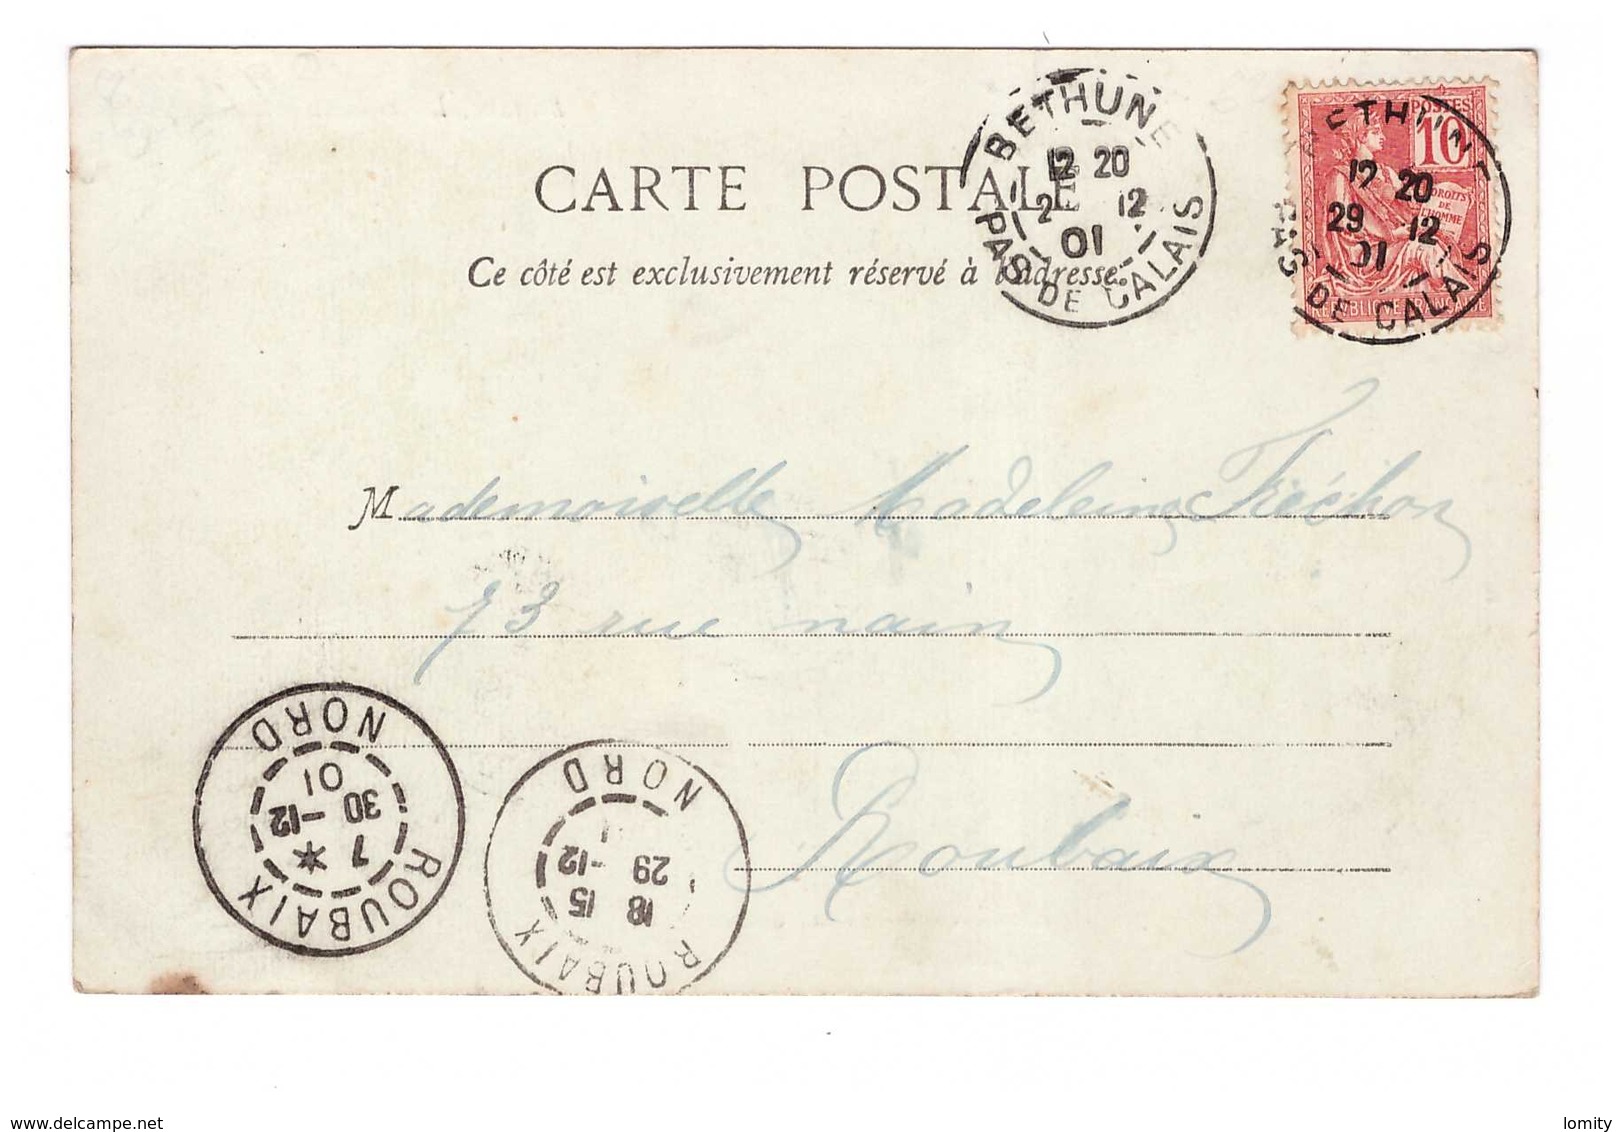 CARTE POSTALE
Ce côté est exclusivement réservé à l'adresse.
BETHUNE
12 20
2 12
01
PAS DE CALAIS
POSTES
10
DROITS
DE
L'HOMME
REPUBLIQUE FRANÇAISE
BETHUNE
12 20
29 12
01
PAS DE CALAIS
Mademoiselle Madeleine Fréchon
73 rue nain
Roubaix
ROUBAIX
7 *
30 -12
01
NORD
ROUBAIX
18 15
29 -12
NORD
www.delcampe.net
lomity